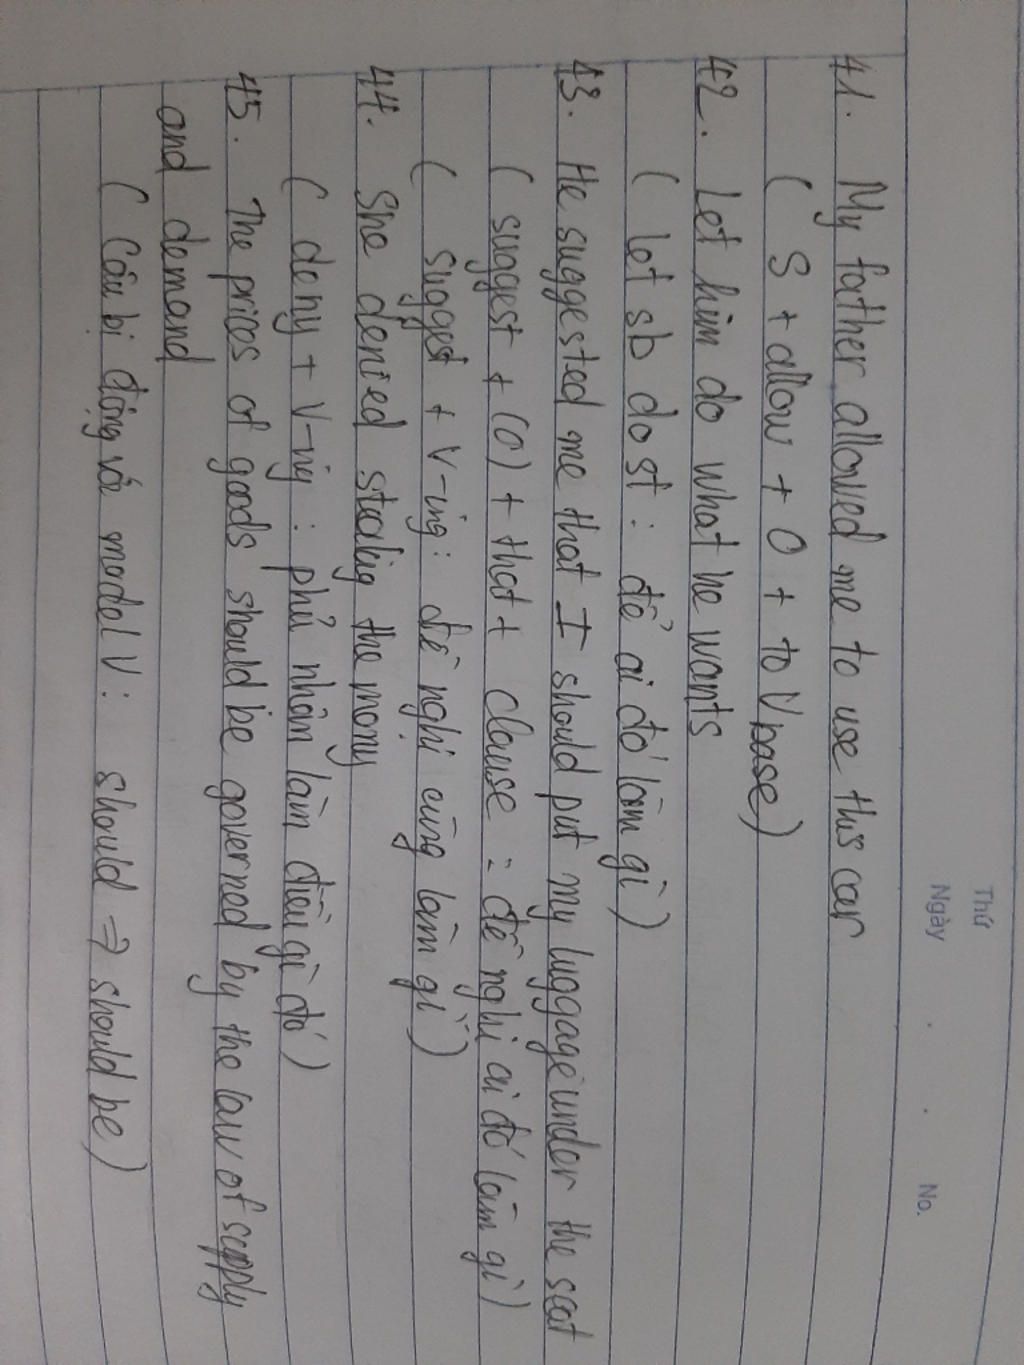 Thứ
Ngày . . No.
41. My father allowed me to use this car
( S + allow + O + to Vbase)
42. Let him do what he wants
( let sb do st : để ai đó làm gì )
43. He suggested me that I should put my luggage under the seat
( suggest + (O) + that + clause : đề nghị ai đó làm gì )
( suggest + V-ing : đề nghị cùng làm gì )
44. She denied stealing the money
( deny + V-ing : phủ nhận làm điều gì đó )
45. The prices of goods should be governed by the law of supply
and demand
( Câu bị động với model V : should => should be )